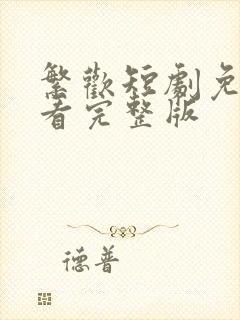 繁歡短劇免
看完整版
德普